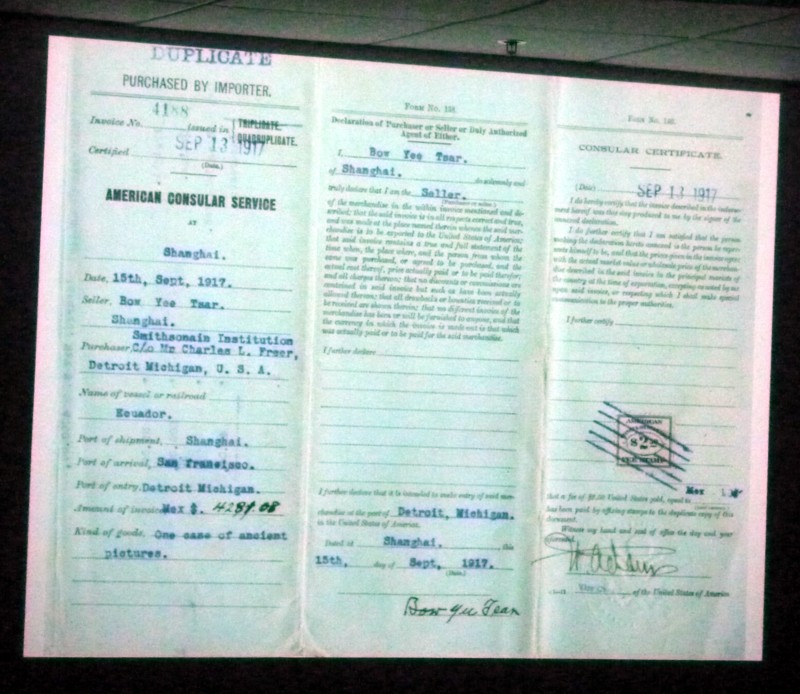 DUPLICATE
PURCHASED BY IMPORTER.
4188
Invoice No. issued in TRIPLICATE. QUADRUPLICATE.
Certified SEP 13 1917
(Date.)
AMERICAN CONSULAR SERVICE
AT
Shanghai.
Date, 15th, Sept, 1917.
Seller, Bow Yee Tsar.
Shanghai.
Smithsonain Institution
Purchaser, C/o Mr Charles L. Freer,
Detroit Michigan, U. S. A.
Name of vessel or railroad
Ecuador.
Port of shipment, Shanghai.
Port of arrival, San Francisco.
Port of entry, Detroit Michigan.
Amount of invoice, Mex $.
Kind of goods, One case of ancient
pictures.
Form No. 138.
Declaration of Purchaser or Seller or Duly Authorized
Agent of Either.
I, Bow Yee Tsar.
of Shanghai. do solemnly and
truly declare that I am the Seller.
(Purchaser or seller.)
of the merchandise in the within invoice mentioned and de-
scribed; that the said invoice is in all respects correct and true,
and was made at the place named therein whence the said mer-
chandise is to be exported to the United States of America;
that said invoice contains a true and full statement of the
time when, the place where, and the person from whom the
same was purchased, or agreed to be purchased, and the
actual cost thereof, price actually paid or to be paid therefor,
and all charges thereon; that no discounts or commissions are
contained in said invoice but such as have been actually
allowed thereon; that all drawbacks or bounties received or to
be received are shown therein; that no different invoice of the
merchandise has been or will be furnished to anyone, and that
the currency in which the invoice is made out is that which
was actually paid or to be paid for the said merchandise.
I further declare
I further declare that it is intended to make entry of said mer-
chandise at the port of Detroit, Michigan.
in the United States of America.
Dated at Shanghai. this
15th, day of Sept, 1917.
(Date.)
Bow Yee Tsar
Form No. 140.
CONSULAR CERTIFICATE.
(Date) SEP 13 1917
I do hereby certify that the invoice described in the indorse-
ment hereof was this day produced to me by the signer of the
annexed declaration.
I do further certify that I am satisfied that the person
making the declaration hereto annexed is the person he repre-
sents himself to be, and that the
I further certify
AMERICAN
$2
FEE STAMP
Mex
has been paid by affixing stamps to the duplicate copy of this
document.
Witness my hand and seal of office the day and year
of the United States of America